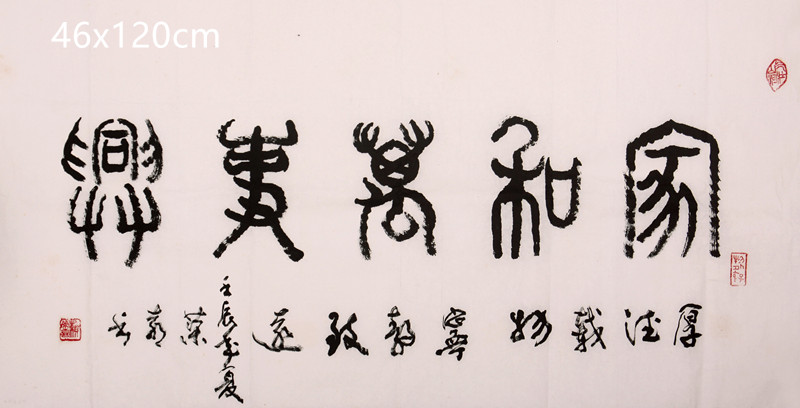 46x120cm
家和萬事興
厚德載物寧靜致遠
壬辰年夏
榮
書